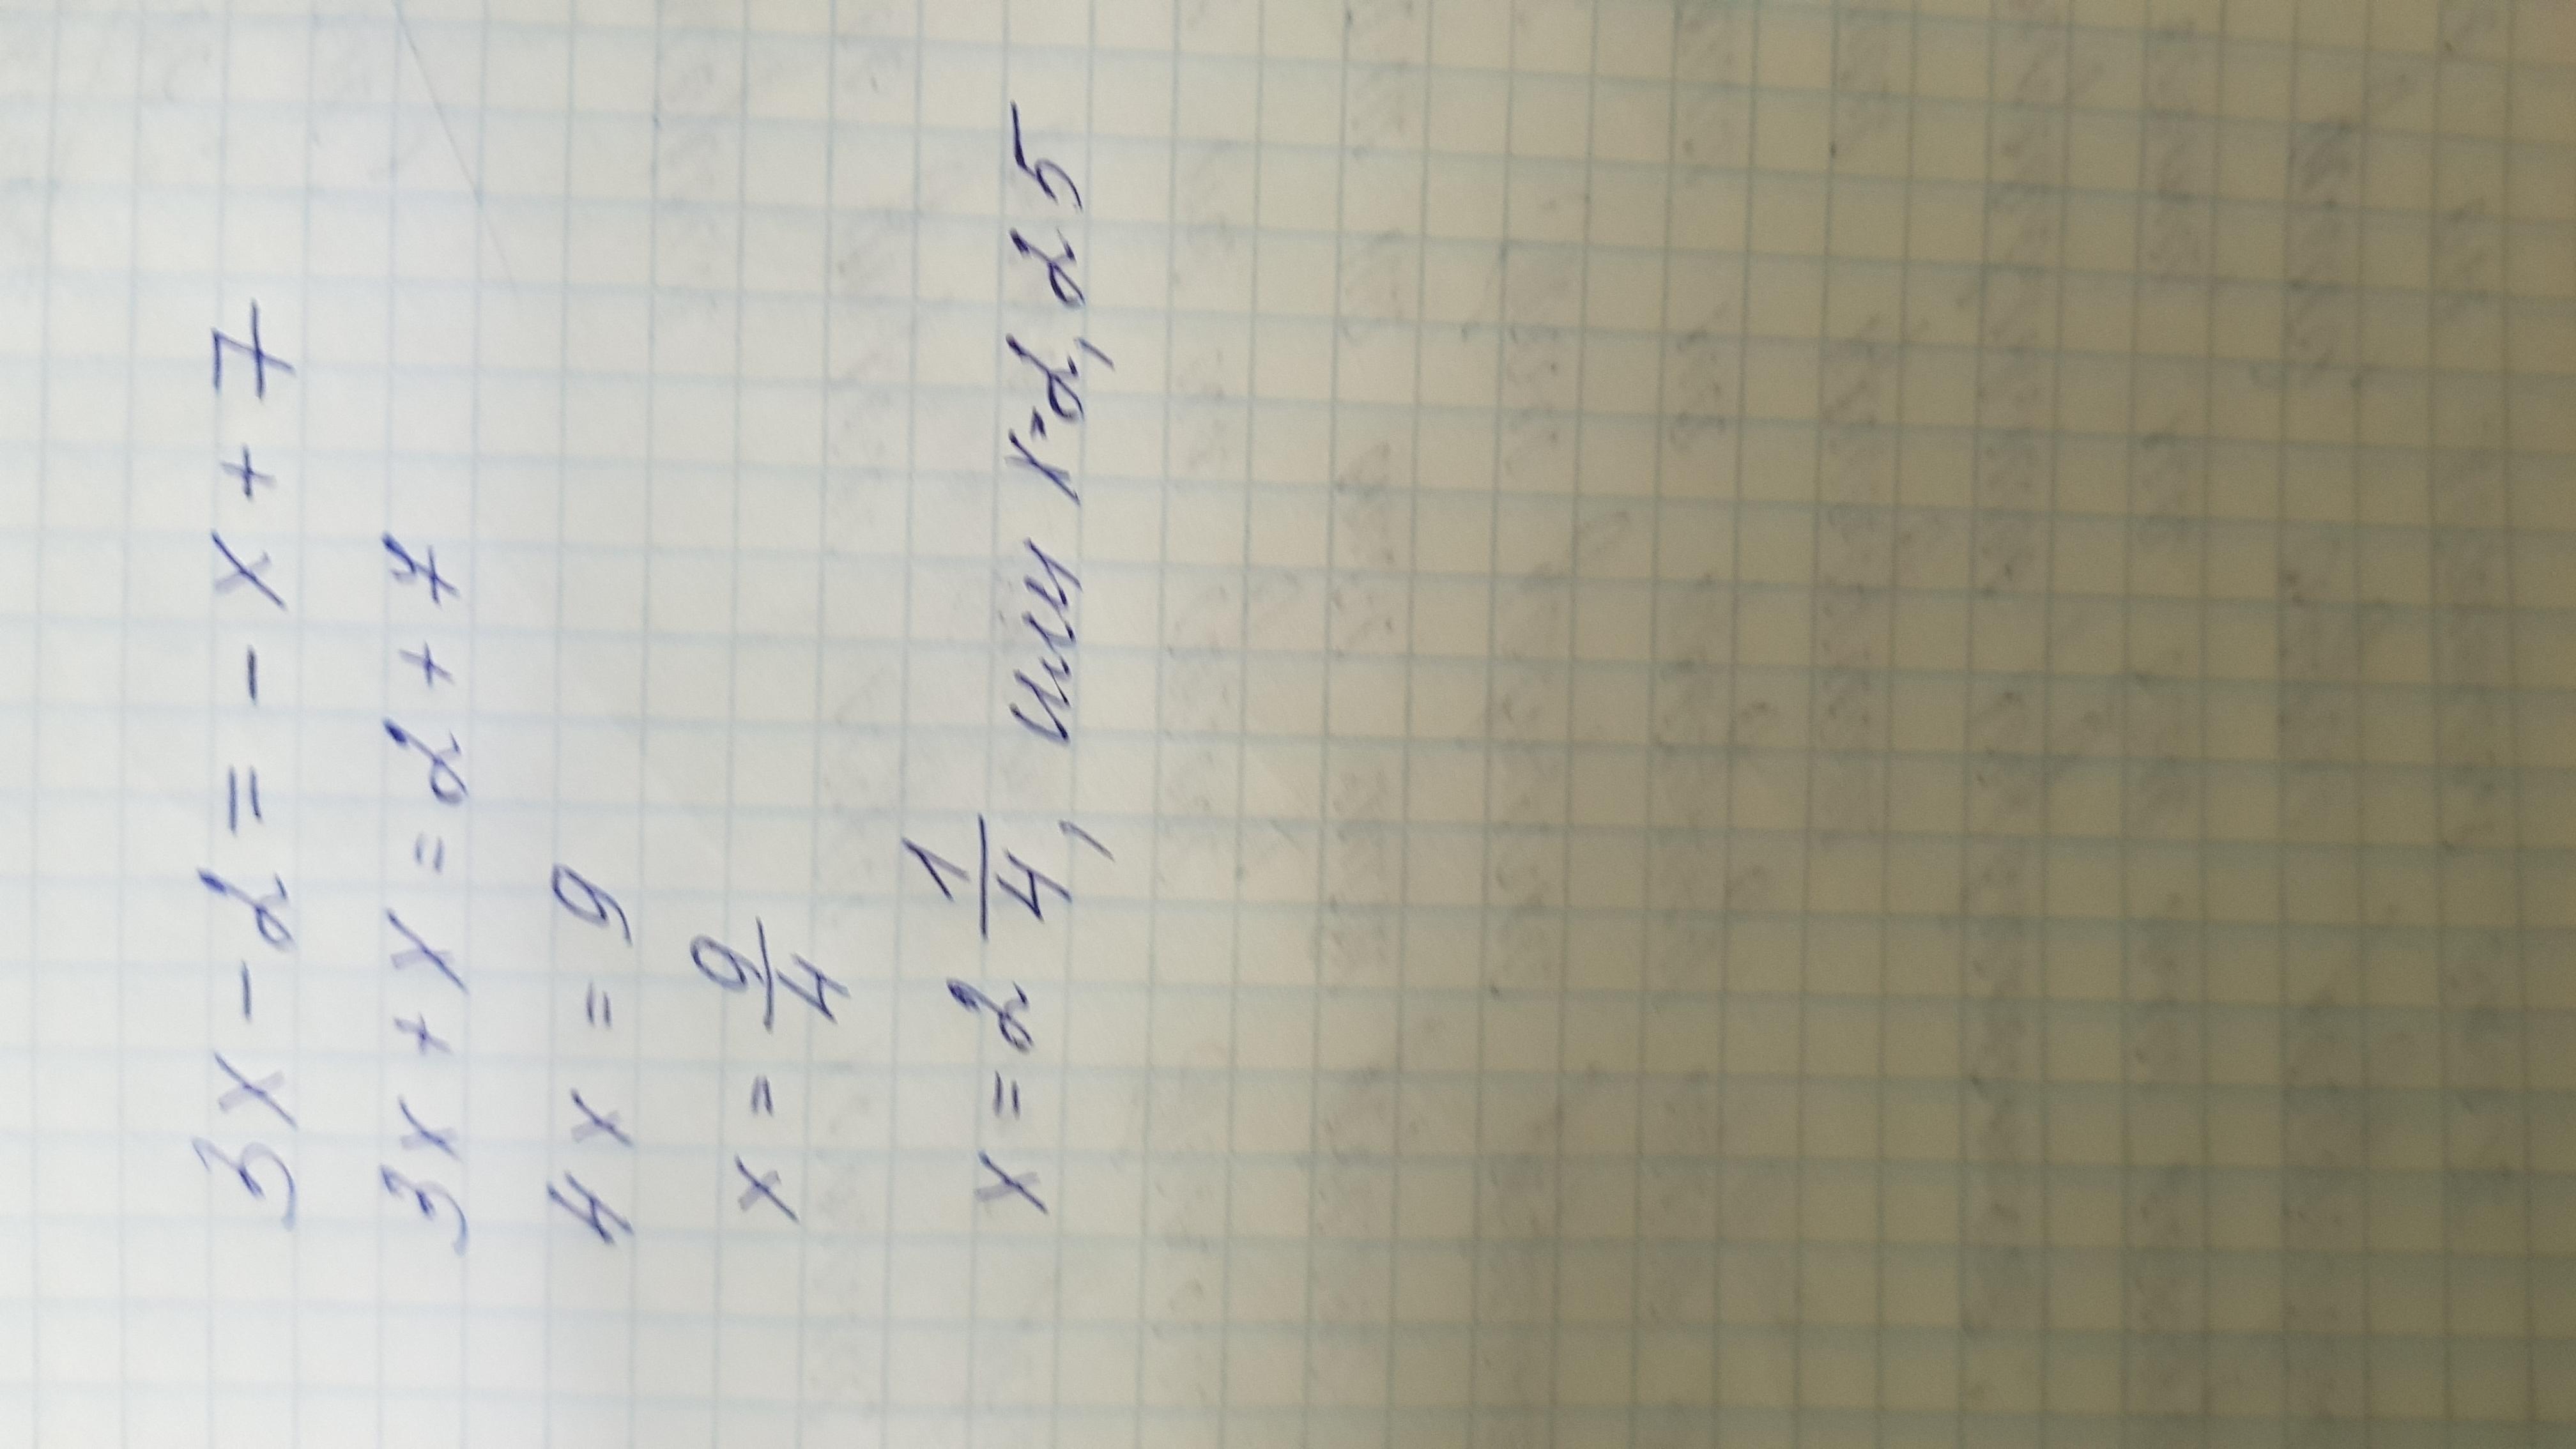 3x - 2 = - x + 7
3x + x = 2 + 7
4x = 9
x = 9/4
x = 2 1/4, или x = 2,25